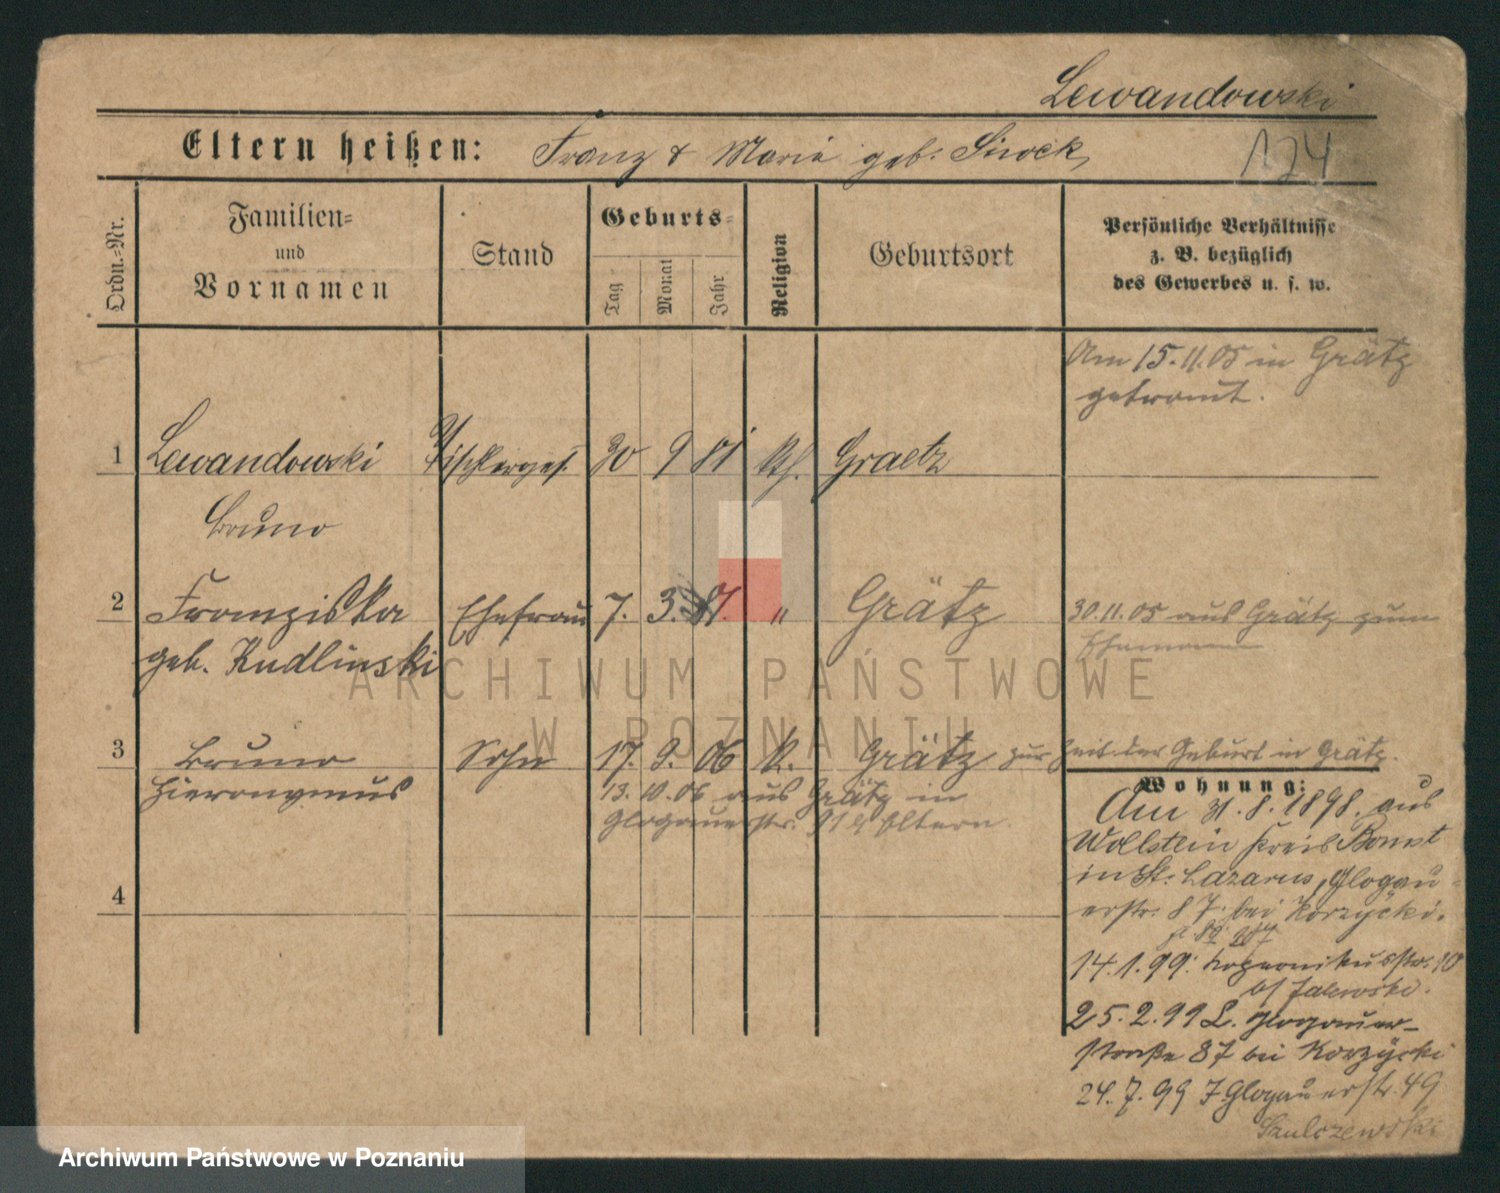 Lewandowski
Eltern heißen: Franz & Maria geb. Siwek
124
Ordn.-Nr.
Familien-
und
Vornamen
Stand
Geburts-
Tag
Monat
Jahr
Religion
Geburtsort
Persönliche Verhältnisse
z. B. bezüglich
des Gewerbes u. s. w.
Am 15.11.05 in Grätz
getraut.
1 Lewandowski Tischlerges. 30 9 81 Kth. Graetz
Bruno
2 Franziska Ehefrau 7. 3. 81. " Grätz 30.11.05 aus Grätz zum
geb. Kudlinski Ehemann
3 Bruno Sohn 17. 9. 06 K. Grätz zur Zeit der Geburt in Grätz.
Hieronymus 13. 10. 06 aus Grätz in
Glogauerstr. Eltern.
4
Wohnung:
Am 31. 8. 1898. aus
Wollstein Kreis Bomst
in St. Lazarus, Glogau-
erstr. 87 bei Korzÿcki.
14. 1. 99. Kopernikusstr. 10
bei Zalewski.
25. 2. 99 L. Glogauer-
straße 87 bei Korzÿcki
24. 7. 99 Glogauerstr. 49
Szulczewski
ARCHIWUM PAŃSTWOWE
W POZNANIU
Archiwum Państwowe w Poznaniu